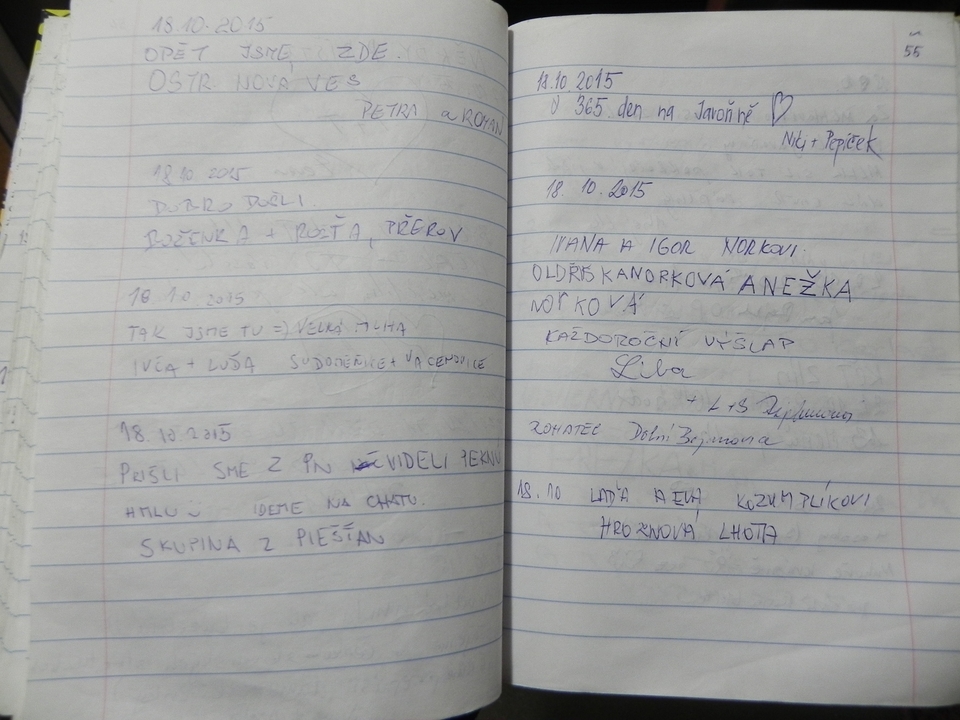 18.10.2015
OPĚT JSME ZDE.
OSTR. NOVÁ VES
PETRA a ROMAN
18.10 2015
DOBRO DOŠLI.
BOŽENKA + ROSŤA, PŘEROV
18 10 2015
TAK JSME TU => VELKÁ MLHA
IVČA + LUĎA SUDOMĚŘICE + VACENOVICE
18.10.2015
PRIŠLI SME Z PN VIDELI PEKNÚ
HMLU IDEME NA CHATU.
SKUPINA Z PIEŠŤAN
55
18.10 2015
365. den na Javořině ♡
Niki + Pepíček
18. 10. 2015
IVANA A IGOR NORKOVI.
OLDŘIŠKA NORKOVÁ ANEŽKA
NORKOVÁ
KAŽDOROČNÍ VÝŠLAP
Liba
+ L + S
Dolní Bojanova
18.10 LAĎA A EVA KOZUMPLÍKOVI
HROZNOVÁ LHOTA